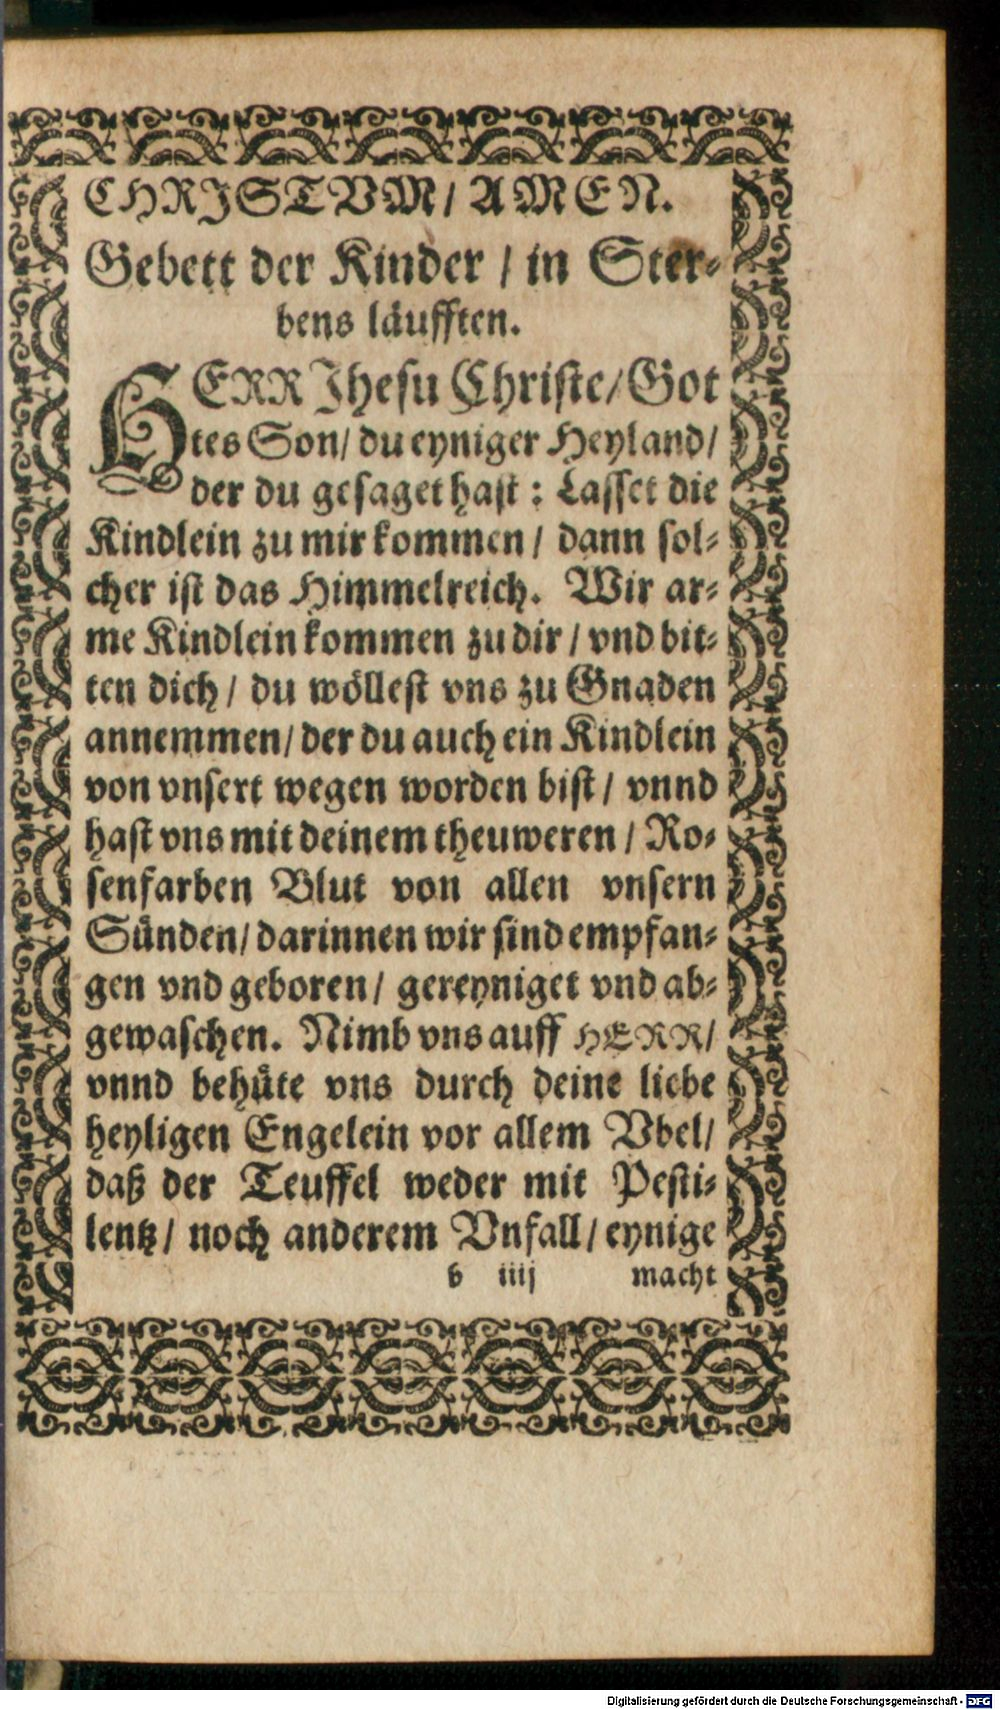 CHRJSTVM/ AMEN.
Gebett der Kinder / in Ster-
bens läufften.
HERR Jhesu Christe/ Got
tes Son/ du eyniger Heyland/
der du gesaget hast : Lasset die
Kindlein zu mir kommen / dann sol-
cher ist das Himmelreich. Wir ar-
me Kindlein kommen zu dir / vnd bit-
ten dich / du wöllest vns zu Gnaden
annemmen / der du auch ein Kindlein
von vnsert wegen worden bist / vnnd
hast vns mit deinem theuweren / Ro-
senfarben Blut von allen vnsern
Sünden/ darinnen wir sind empfan-
gen vnd geboren / gereyniget vnd ab-
gewaschen. Nimb vns auff HERR/
vnnd behüte vns durch deine liebe
heyligen Engelein vor allem Vbel/
daß der Teuffel weder mit Pesti-
lentz / noch anderem Vnfall / eynige
b iiij macht
Digitalisierung gefördert durch die Deutsche Forschungsgemeinschaft - DFG